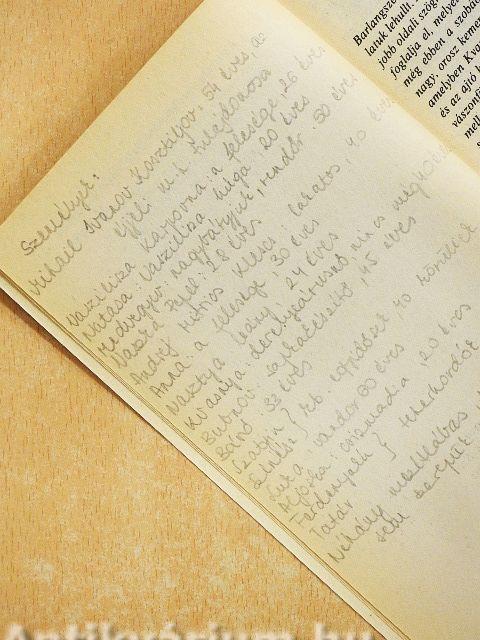 Személyek:
Mihail Ivanov Kosztiljov: 54 éves, az
éjjeli m.h. tulajdonosa
Vaszilisza Karpovna a felesége, 26 éves
Natasa: Vaszilisza húga, 20 éves
Medvegyev: nagybátyjuk, rendőr, 50 éves
Vaszka Pepel: 28 éves
Andrej Mitrics Klescs: lakatos, 40 éves
Anna: a felesége, 30 éves
Nasztya: leány, 24 éves
Kvasnya: derelyeárusnő, nincs még 40 éves
Bubnov: sapkakészítő, 45 éves
Báró: 33 éves
Szatyin } kb. egyidősek, 40 körüliek
Színész
Luka: vándor 60 éves
Aljoska: csizmadia, 20 éves
} teherhordók
Tatár
Néhány mezítlábas
szereplő
Barlangszer
lanuk lehullt.
jobb oldali szög
foglalja el, melyet
még ebben a szobá
nagy, orosz kemen
amelyben Kva
és az ajtó k
vászonfü
mell
Antikvárium.hu